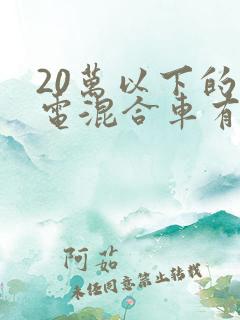 20萬以下的
電混合車有
阿茹
未经同意禁止转载